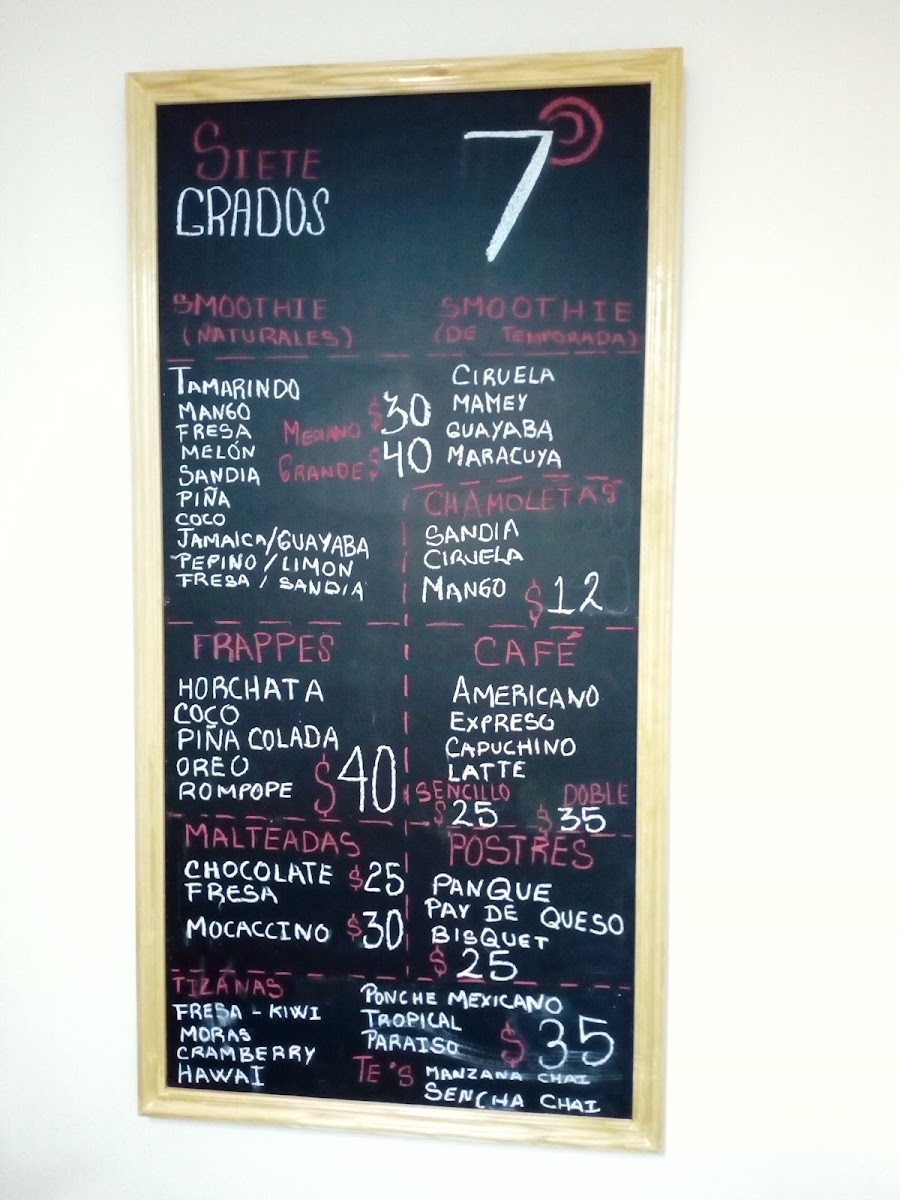 SIETE
GRADOS
7°
SMOOTHIE
(NATURALES)
TAMARINDO
MANGO
FRESA
MELÓN
SANDIA
PIÑA
COCO
JAMAICA/GUAYABA
PEPINO/LIMON
FRESA/SANDIA
MEDIANO $30
GRANDE $40
SMOOTHIE
(DE TEMPORADA)
CIRUELA
MAMEY
GUAYABA
MARACUYA
CHAMOLETAS
SANDIA
CIRUELA
MANGO $12
FRAPPES
HORCHATA
COCO
PIÑA COLADA
OREO
ROMPOPE $40
CAFÉ
AMERICANO
EXPRESO
CAPUCHINO
LATTE
SENCILLO DOBLE
$25 $35
MALTEADAS
CHOCOLATE $25
FRESA
MOCACCINO $30
POSTRES
PANQUE
PAY DE QUESO
BISQUET
$25
TIZANAS
FRESA - KIWI
MORAS
CRAMBERRY
HAWAI
PONCHE MEXICANO
TROPICAL
PARAISO $35
TE'S MANZANA CHAI
SENCHA CHAI